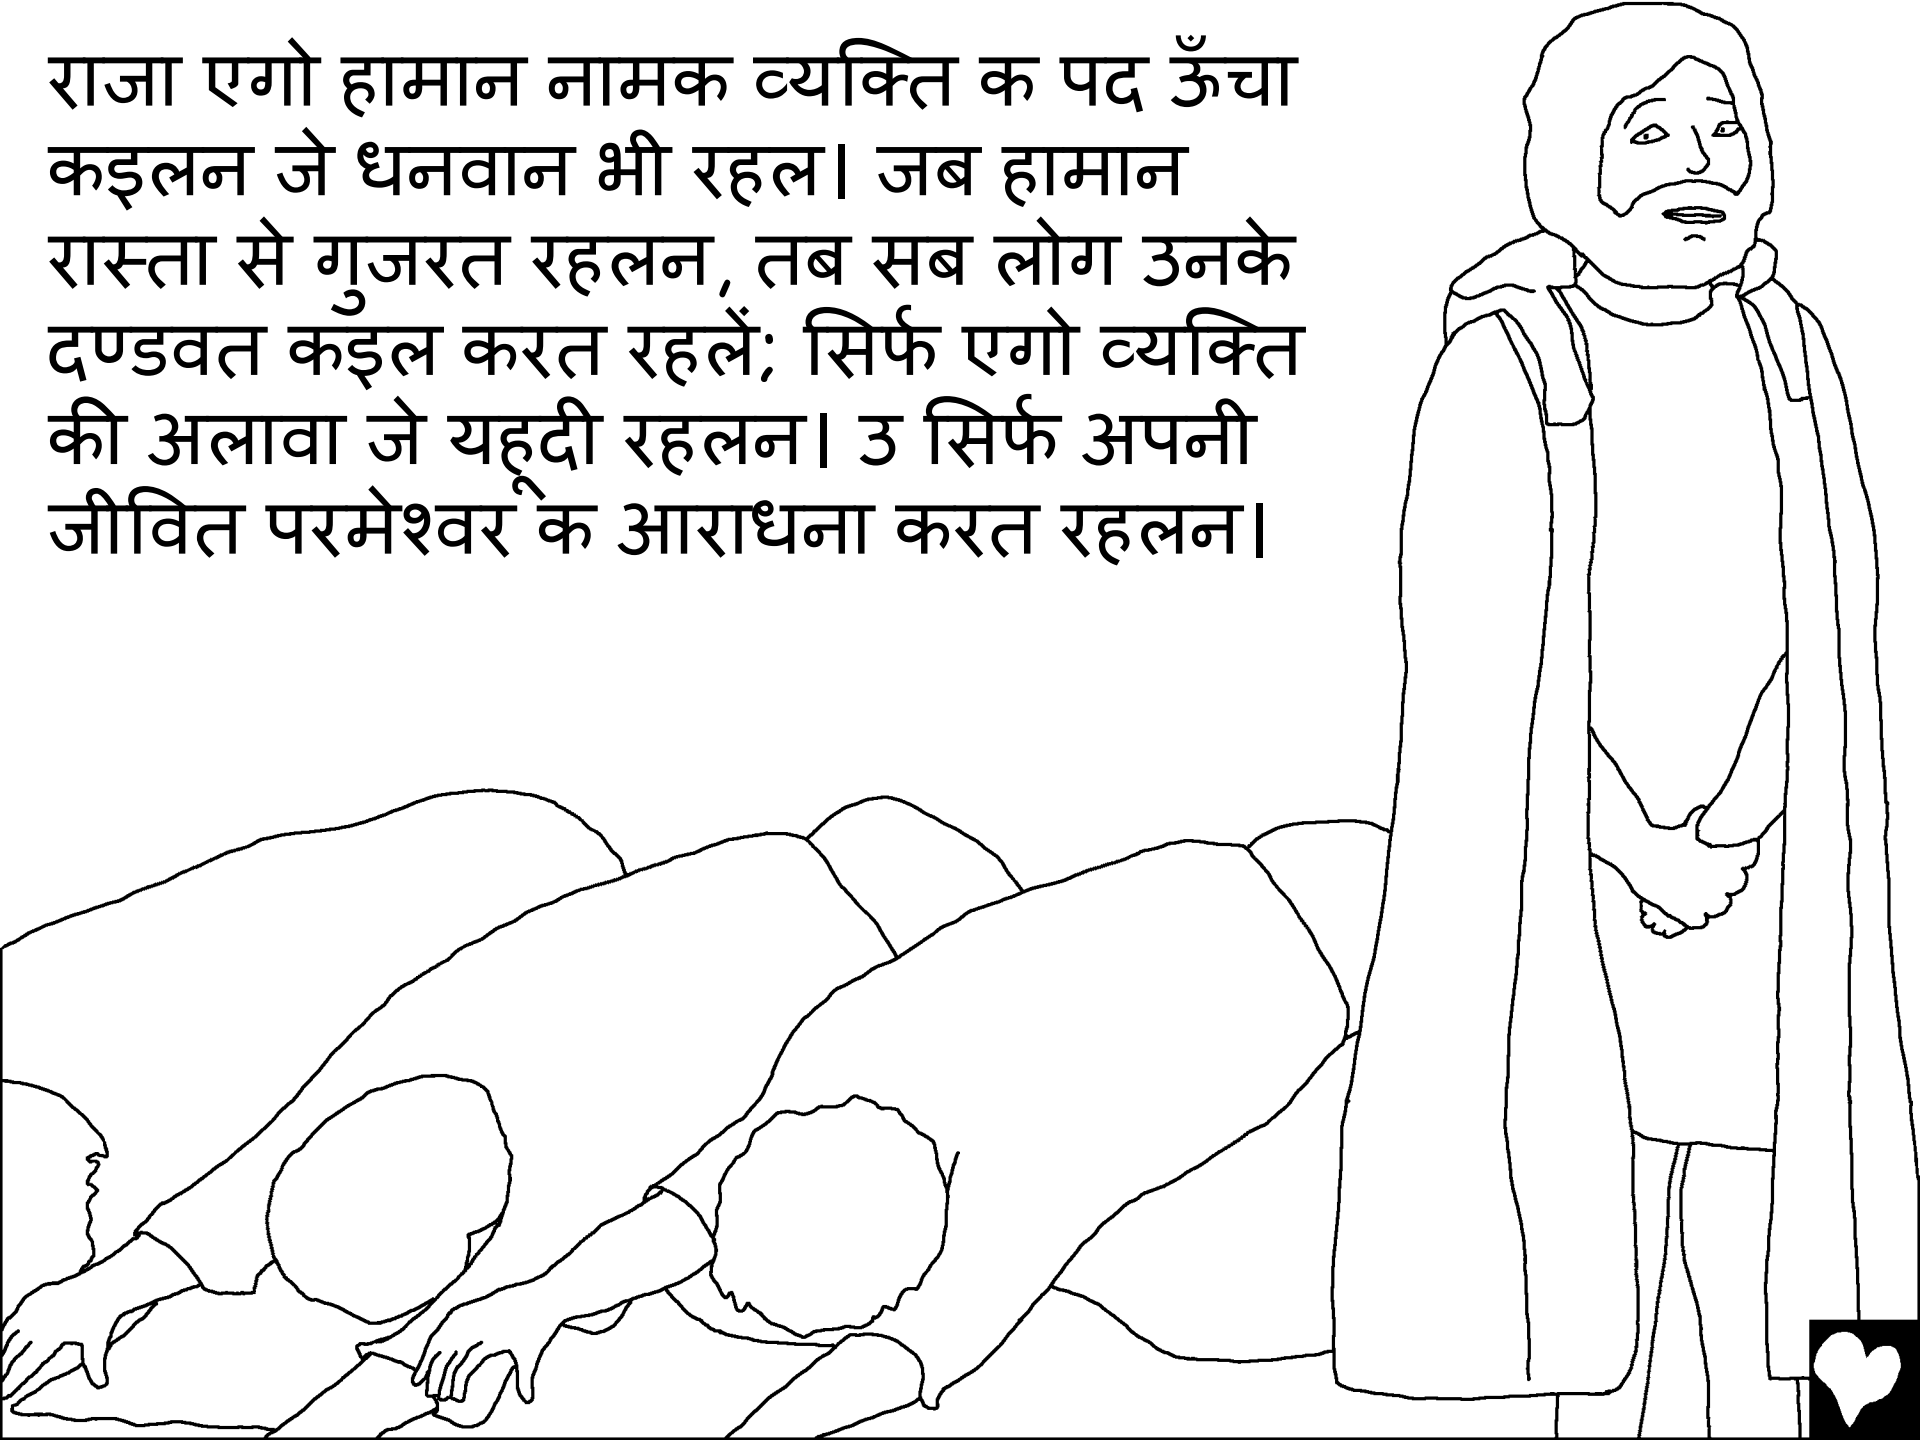 राजा एगो हामान नामक व्यक्ति क पद ऊँचा
कइलन जे धनवान भी रहल। जब हामान
रास्ता से गुजरत रहलन, तब सब लोग उनके
दण्डवत कइल करत रहलें; सिर्फ एगो व्यक्ति
की अलावा जे यहूदी रहलन। उ सिर्फ अपनी
जीवित परमेश्वर क आराधना करत रहलन।